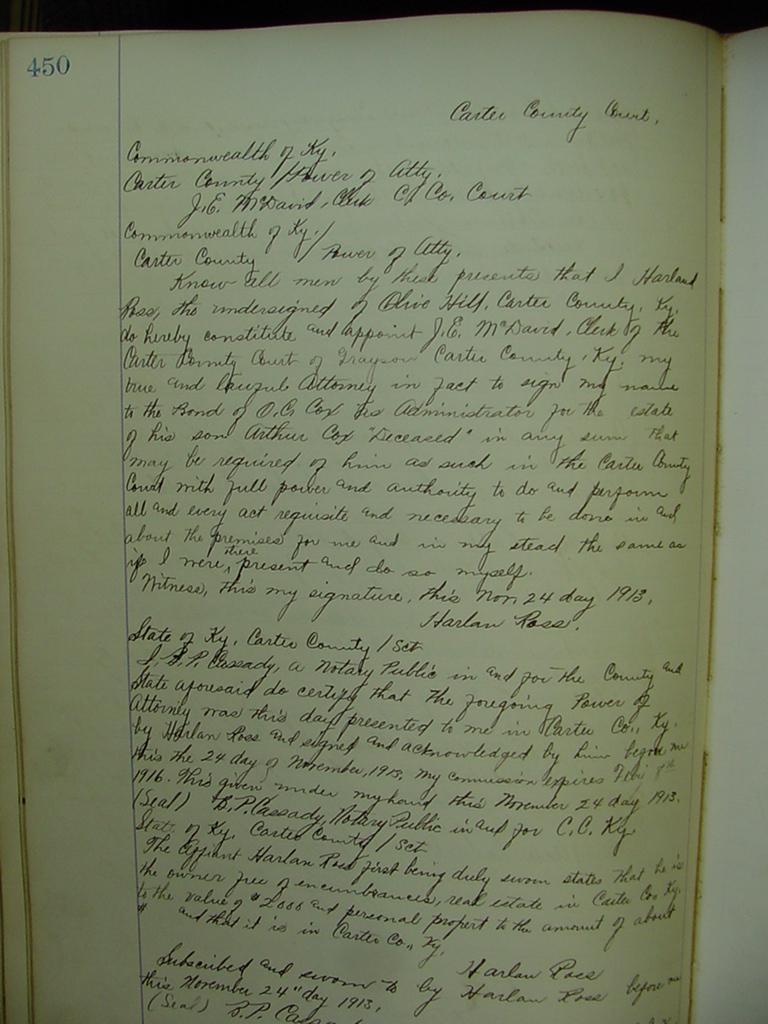 450
Carter County Court.
Commonwealth of Ky.
Carter County / Power of Atty.
J.E. McDavid, Clerk C. Co. Court
Commonwealth of Ky. /
Carter County / Power of Atty.
Know all men by these presents that I Harland
Ross, the undersigned of Olive Hill, Carter County, Ky.
do hereby constitute and appoint J.E. McDavid, Clerk of the
Carter County Court of Grayson Carter County, Ky. my
true and lawful Attorney in fact to sign my name
to the Bond of O.G. Cox as Administrator for the estate
of his son Arthur Cox "Deceased" in any sum that
may be required of him as such in the Carter County
Court with full power and authority to do and perform
all and every act requisite and necessary to be done in and
about the premises for me and in my stead the same as
if I were there present and do so myself.
Witness, this my signature, this Nov. 24 day 1913.
Harlan Ross.
State of Ky. Carter County / Sct
I, B.P. Cassady, a Notary Public in and for the County and
State aforesaid do certify that the foregoing Power of
Attorney was this day presented to me in Carter Co., Ky.
by Harlan Ross and signed and acknowledged by him before me
this the 24 day of November, 1913, my commission expires 8th
1916. This given under my hand this November 24 day 1913.
(Seal) B.P. Cassady, Notary Public in and for C.C. Ky.
State of Ky. Carter County / Sct
The affiant Harlan Ross first being duly sworn states that he is
the owner free of encumbrances, real estate in Carter Co. Ky.
to the value of $2000 and personal propert to the amount of about
$ and that it is in Carter Co., Ky.
Harlan Ross
Subscribed and sworn to by Harlan Ross before me
this November 24" day 1913.
(Seal) B.P.